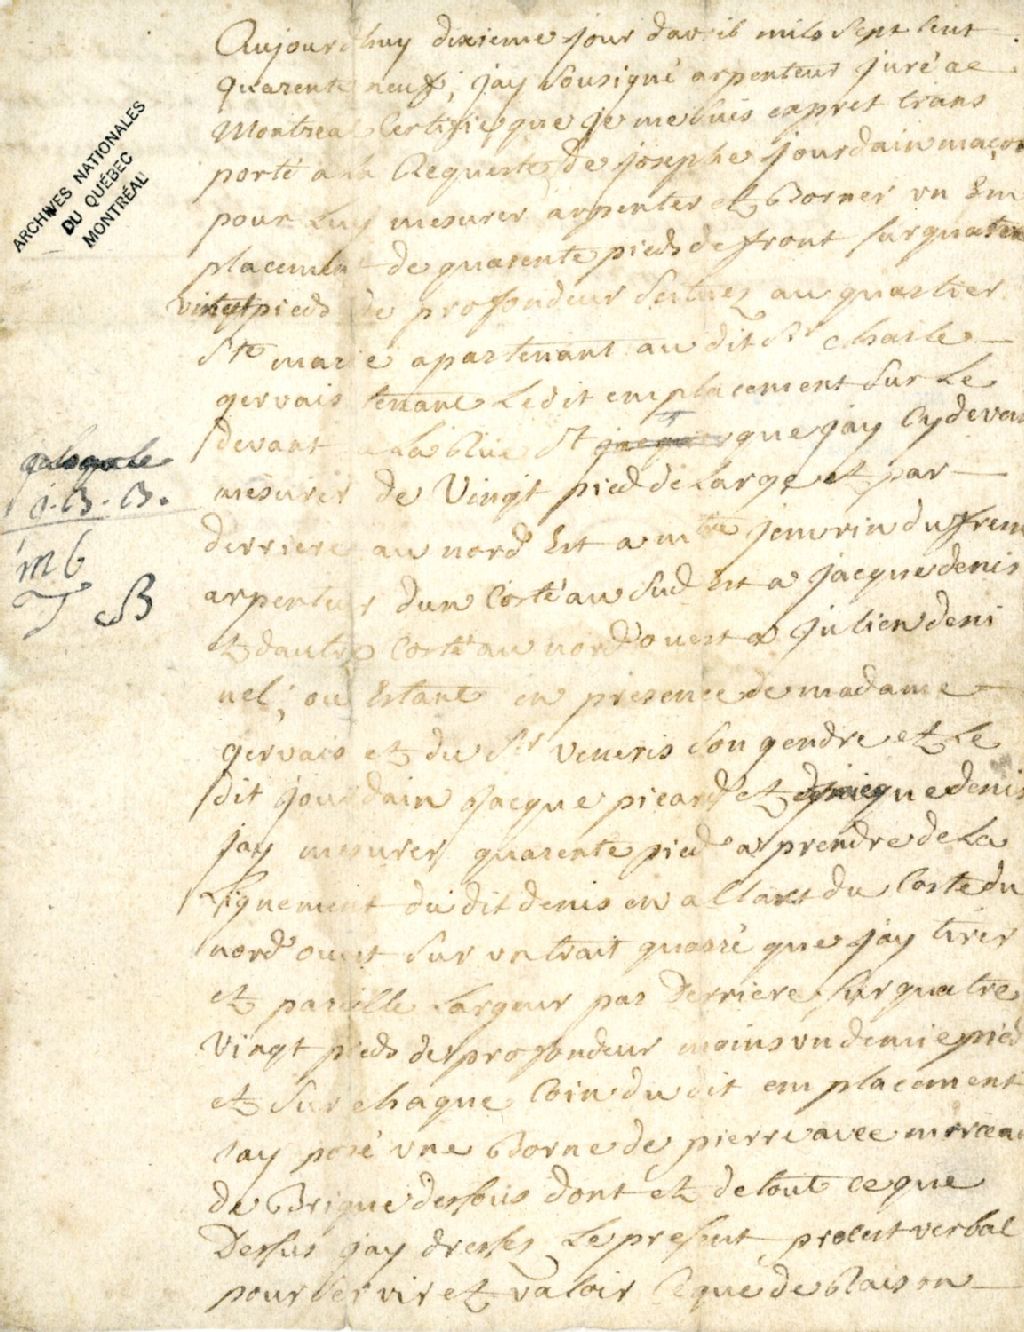 Aujourdhuy dixieme jour davril mils sept Cent
quarente neuf, jay Sousigné arpenteur juré de
Montreal Certifie que je me suis expret trans
porté a la Requeste de josephe jourdain maçon
pour Luy mesurer arpenter et Borner un Em
placement de quarente pieds de front sur quatre
vingt pieds de profondeur scituez au quartier
Ste marie apartenant au dit Sr Charle
gervais tenant Ledit emplacement Sur Le
devant a La Rue St que jay Cy devant
mesurer de Vingt pied de Large et par
derriere au nord Est a mtre jenvrin dufresne
arpenteur dun Costé au Sud Est a jacque denis
et dautre Costé au nord ouest a julien deni
nel; ou Estant en presence de madame
gervais et du Sr veneris son gendre et Le
dit jourdain jacque picard et jacque denis
jay mesurer quarente pied a prendre de La
Lignement du dit denis en allant du Costé du
nord ouest Sur un trait quarré que jay tirer
et pareille Largeur par Derriere sur quatre
Vingt pieds de profondeur moins un demie pied
et Sur chaque Coin du dit emplacement
jay posé une Borne de pierre avec morceau
de Brique dessous dont et de tout ce que
Dessus jay dresses Le present procest verbal
pour servir et valoir Ce que de Raison
ARCHIVES NATIONALES
DU QUÉBEC
MONTRÉAL
J.B.B.
mb
T B